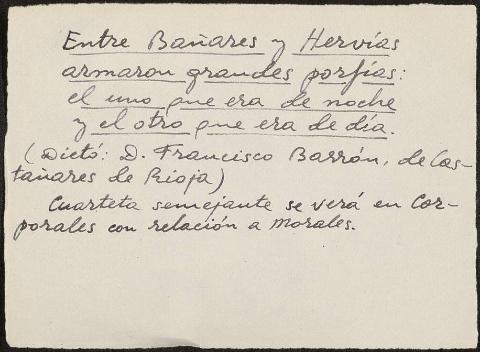 Entre Bañares y Hervías
armaron grandes porfías:
el uno que era de noche
y el otro que era de día.
(Dictó: D. Francisco Barrón, de Cas-
tañares de Rioja)
Cuarteta semejante se verá en Cor-
porales con relación a Morales.